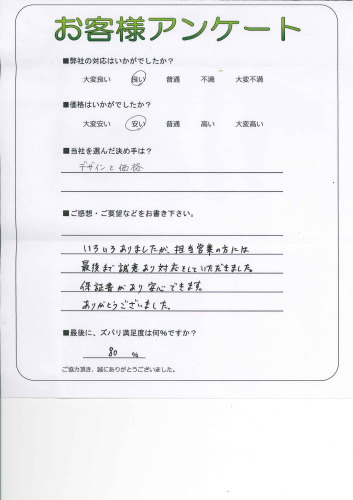 お客様アンケート
■弊社の対応はいかがでしたか?
大変良い 良い 普通 不満 大変不満
■価格はいかがでしたか?
大変安い 安い 普通 高い 大変高い
■当社を選んだ決め手は?
デザインと価格
■ご感想・ご要望などをお書き下さい。
いろいろありましたが、担当営業の方には
最後まで誠意あり対応をしていただきました。
保証書があり安心できます。
ありがとうございました。
■最後に、ズバリ満足度は何%ですか?
80 %
ご協力頂き、誠にありがとうございました。